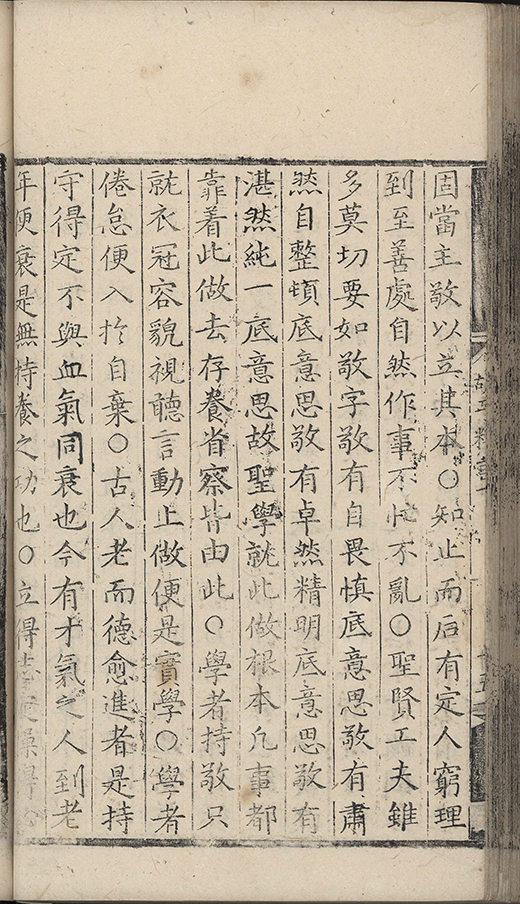 固當主敬以立其本〇知止而后有定人窮理
到至善處自然作事不忙不亂〇聖賢工夫雖
多莫切要如敬字敬有自畏慎底意思敬有肅
然自整頓底意思敬有卓然精明底意思敬有
湛然純一底意思故聖學就此做根本凡事都
靠着此做去存養省察皆由此〇學者持敬只
就衣冠容貌視聽言動上做便是實學〇學者
倦怠便入扵自棄〇古人老而德愈進者是持
守得定不與血氣同衰也今有才氣之人到老
年便衰是無持養之功也〇立得志定操得